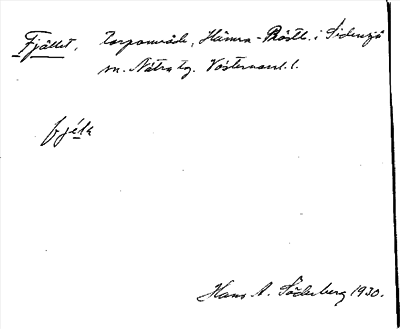 Fjället, torpområde, Hämra-Röstb. i Sidensjö
sn. Nätra tg. Västernorrl. l.
fjéla
Hans A. Söderberg 1930.